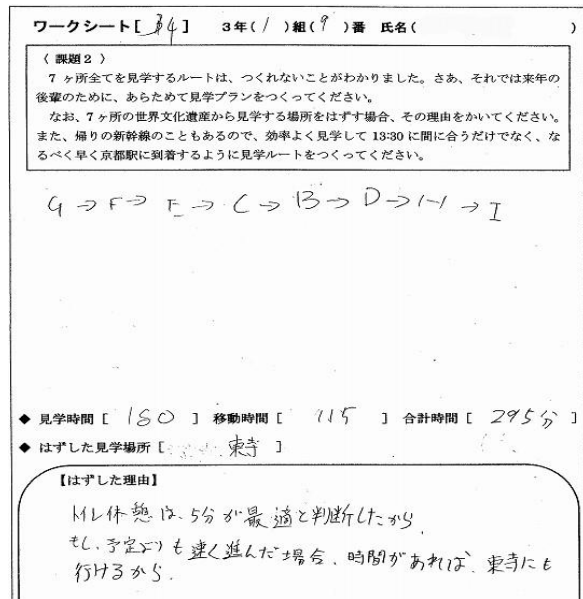 ワークシート[ 34 ] 3年( 1 )組( 9 )番 氏名( )
〈 課題2 〉
7ヶ所全てを見学するルートは、つくれないことがわかりました。さあ、それでは来年の
後輩のために、あらためて見学プランをつくってください。
なお、7ヶ所の世界文化遺産から見学する場所をはずす場合、その理由をかいてください。
また、帰りの新幹線のこともあるので、効率よく見学して 13:30 に間に合うだけでなく、な
るべく早く京都駅に到着するように見学ルートをつくってください。
G → F → E → C → B → D → H → I
◆ 見学時間 [ 180 ] 移動時間 [ 115 ] 合計時間 [ 295分 ]
◆ はずした見学場所 [ 東寺 ]
【はずした理由】
トイレ休憩は、5分が最適と判断したから
もし、予定よりも速く進んだ場合、時間があれば、東寺にも
行けるから.